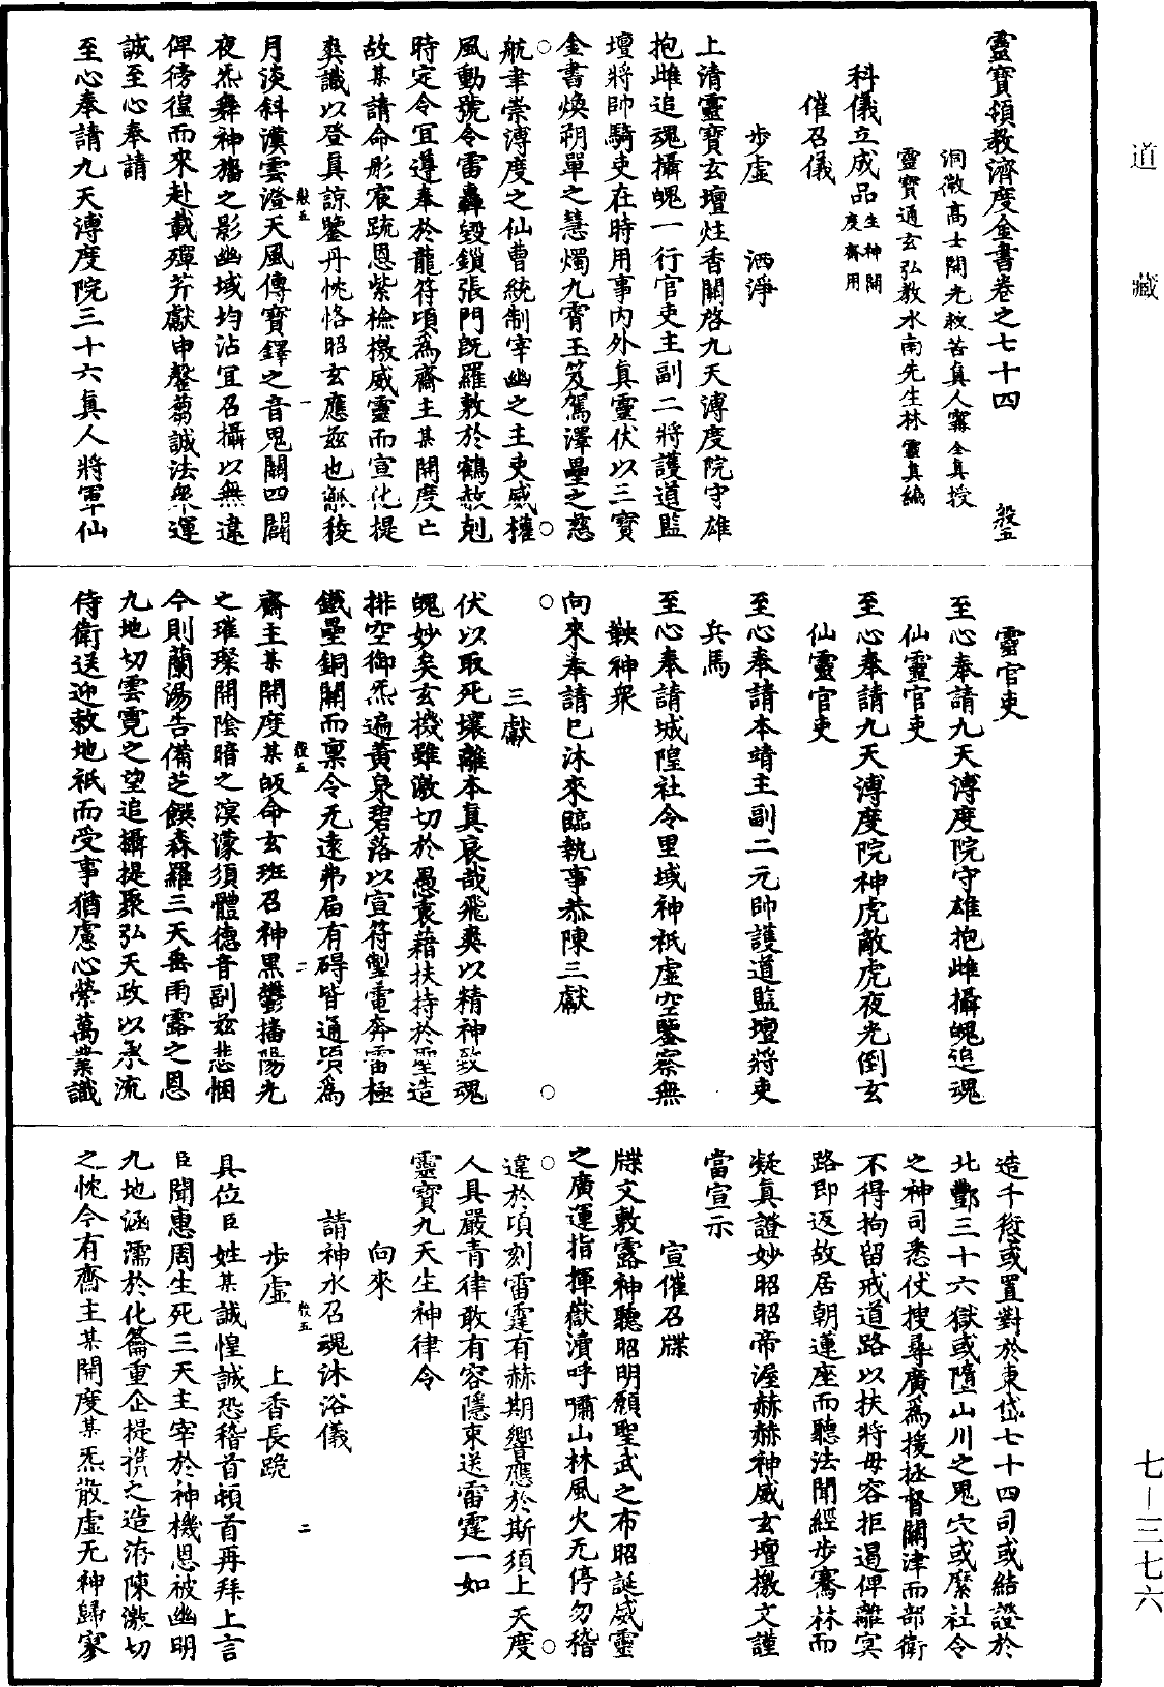 道藏
七－三七六
靈寶領教濟度金書卷之七十四　殺五
洞微高士開光救苦真人甯全真授
靈寶通玄弘教水南先生林靈真編
科儀立成品生神開度齋用
催召儀
步虛　洒淨
上清靈寶玄壇炷香關啓九天溥度院守雄
抱雌追魂攝魄一行官吏主副二將護道監
壇將帥騎吏在時用事內外真靈伏以三寶
金書煥朔單之慧燭九霄玉笈駕澤壘之慈
航聿崇溥度之仙曹統制宰幽之主吏威權
風動號令雷轟毀鎖張門旣羅敷於鶴赦剋
時定令宜遵奉於龍符頃為齋主某開度亡
故某請命彤宸䟽恩紫檢檄威靈而宣化提
爽識以登真諒鑒丹忱恪昭玄應茲也觚稜
月淡斜漢雲澄天風傳寶鐸之音鬼關四闢
夜炁舞神旛之影幽域均沾宜召攝以無違
俾徬徨而來赴載殫芹獻申罄蒭誠法衆運
誠至心奉請
至心奉請九天溥度院三十六真人將軍仙
靈官吏
至心奉請九天溥度院守雄抱雌攝魄追魂
仙靈官吏
至心奉請九天溥度院神虎敵虎夜光倒玄
仙靈官吏
至心奉請本靖主副二元帥護道監壇將吏
兵馬
至心奉請城隍社令里域神祇虛空鑒察無
鞅神衆
向來奉請已沐來臨執事恭陳三獻
三獻
伏以取死壞離本真哀哉飛爽以精神致魂
魄妙矣玄機雖激切於愚衷藉扶持於聖造
排空御炁遍黃泉碧落以宣符掣電奔雷極
鐵壘銅關而禀令无遠弗屆有碍皆通頃為
齋主某開度某皈命玄班召神黑鬱播陽光
之璀璨開陰暗之溟濛須體德音副茲悲悃
今則蘭湯告備芝饌森羅三天垂雨露之恩
九地切雲霓之望追攝提聚弘天政以承流
侍衛送迎敕地祇而受事猶慮心縈萬業識
造千愆或置對於東岱七十四司或結證於
北酆三十六獄或墮山川之鬼穴或縻社令
之神司悉仗搜尋廣為援拯督關津而部衛
不得拘留戒道路以扶將毋容拒遏俾離㝠
路即返故居朝蓮座而聽法聞經步騫林而
凝真證妙昭昭帝渥赫赫神威玄壇檄文謹
當宣示
宣催召牒
牒文敷露神聽昭明願聖武之布昭誕威靈
之廣運指揮嶽瀆呼嘯山林風火无停勿稽
違於頃刻雷霆有赫期響應於斯須上天度
人具嚴青律敢有容隱束送雷霆一如
靈寶九天生神律令
向來
請神水召魂沐浴儀
步虛　上香長跪
具位臣姓某誠惶誠恐稽首頓首再拜上言
臣聞惠周生死三天主宰於神機恩被幽明
九地涵濡於化籥重企提携之造洊陳激切
之忱今有齋主某開度某炁散虛无神歸寥